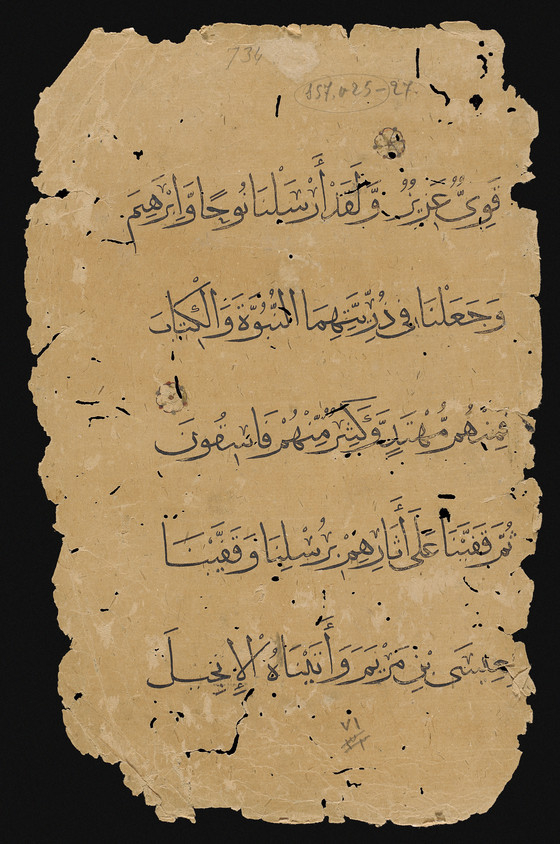 734
S57, v25-27.
قَوِىٌّ عَزِيزٌ وَّلَقَدْ أَرْسَلْنَا نُوحًا وَّاِبْرَهِيمَ
وَجَعَلْنَا فِى ذُرِّيَّتِهِمَا النُّبُوَّةَ وَالْكِتَابَ
فَمِنْهُم مُّهْتَدٍ وَّكَثِيرٌ مِّنْهُمْ فَاسِقُونَ
ثُمَّ قَفَّيْنَا عَلَى أَثَارِهِمْ بِرُسُلِنَا وَقَفَّيْنَا
بِعِيسَى بْنِ مَرْيَمَ وَأَتَيْنَاهُ الْإِنْجِيلَ
٧١